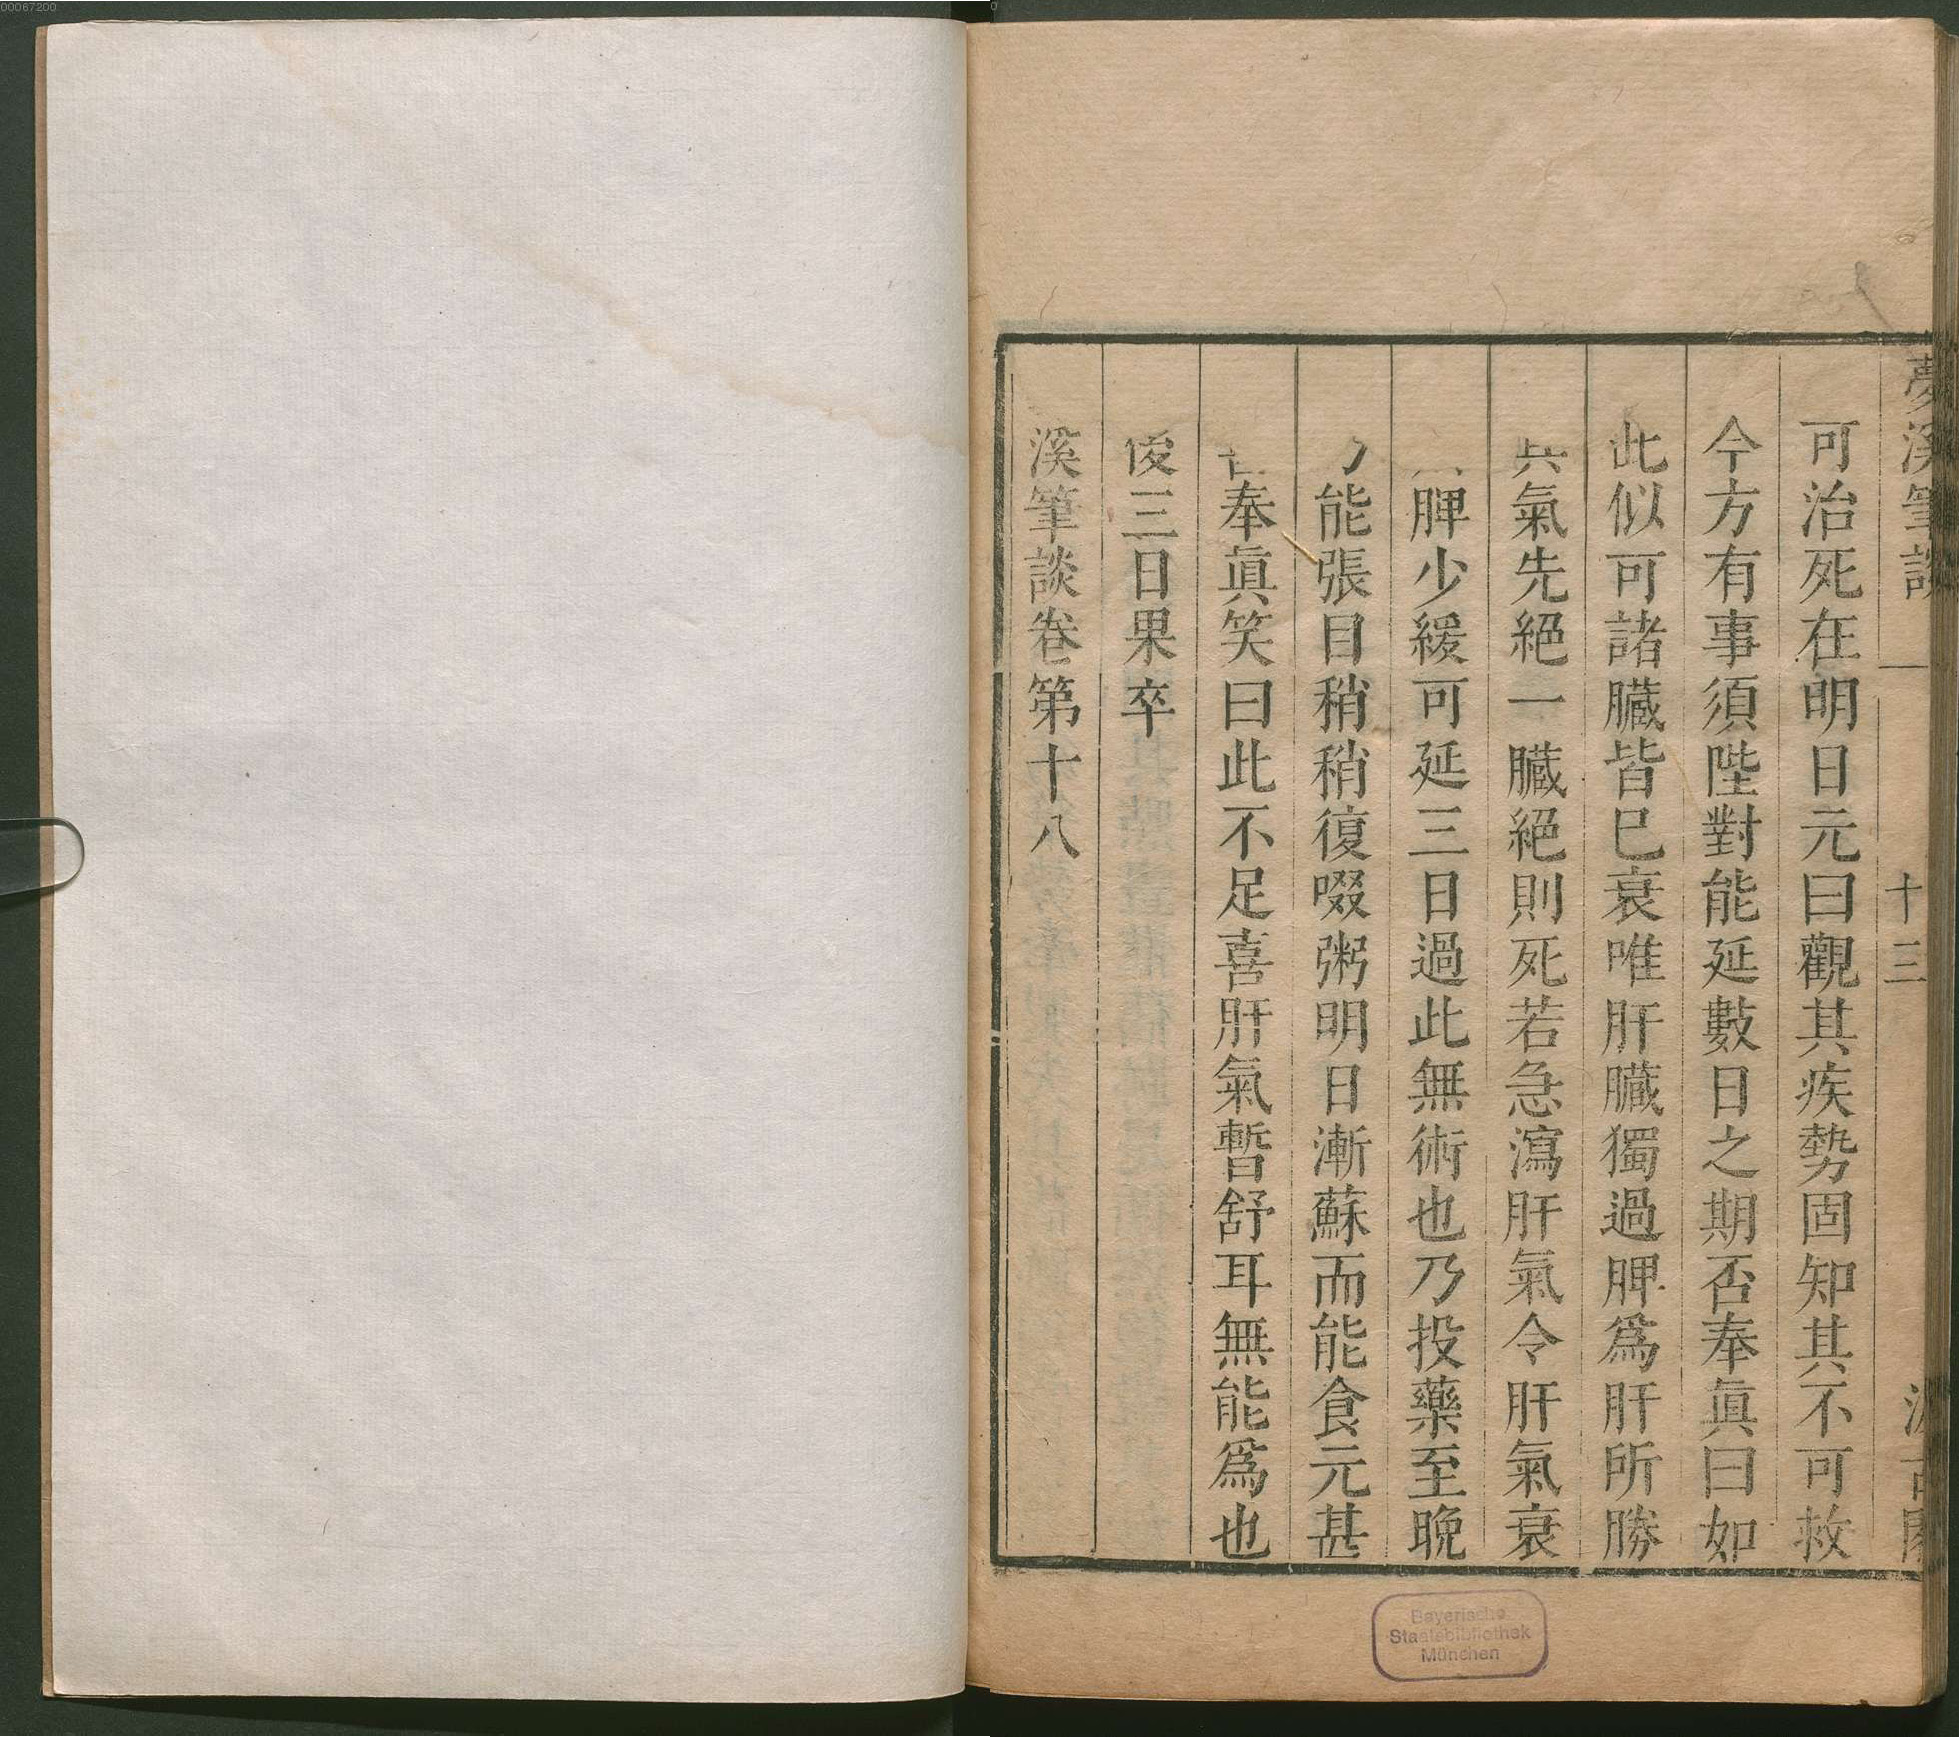 00067200
夢溪筆談
十三
可治死在明日元曰觀其疾勢固知其不可救
今方有事須陛對能延數日之期否奉眞曰如
此似可諸臟皆已衰唯肝臟獨過脾爲肝所勝
其氣先絕一臟絕則死若急瀉肝氣令肝氣衰
脾少緩可延三日過此無術也乃投藥至晚
能張目稍稍復啜粥明日漸蘇而能食元甚
奉眞笑曰此不足喜肝氣暫舒耳無能爲也
後三日果卒
溪筆談卷第十八
Bayerische
Staatsbibliothek
München